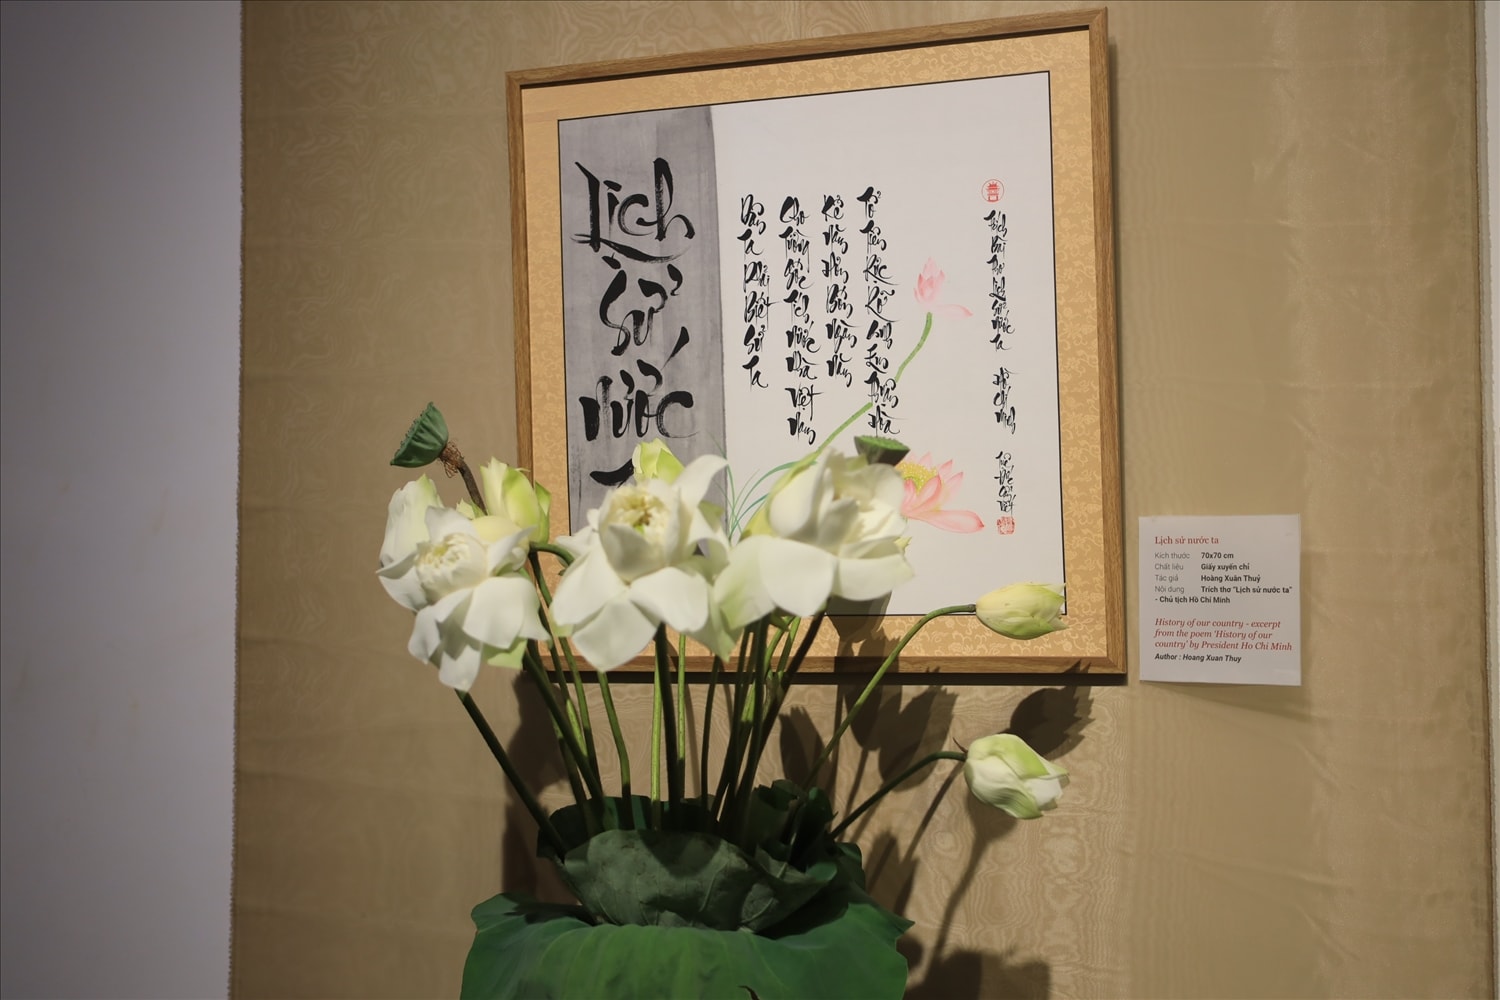 Lịch
Sử
Nước
Dân Ta Phải Biết Sử Ta
Cho Tường Gốc Tích Nước Nhà Việt Nam
Kể Năm Hơn Bốn Ngàn Năm
Tổ Tiên Rực Rỡ Anh Em Thuận Hòa
Trích Bài Thơ Lịch Sử Nước Ta Hồ Chí Minh
Lịch sử nước ta
Kích thước 70x70 cm
Chất liệu Giấy xuyến chỉ
Tác giả Hoàng Xuân Thuỷ
Nội dung Trích thơ "Lịch sử nước ta"
- Chủ tịch Hồ Chí Minh
History of our country - excerpt
from the poem 'History of our
country' by President Ho Chi Minh
Author : Hoang Xuan Thuy